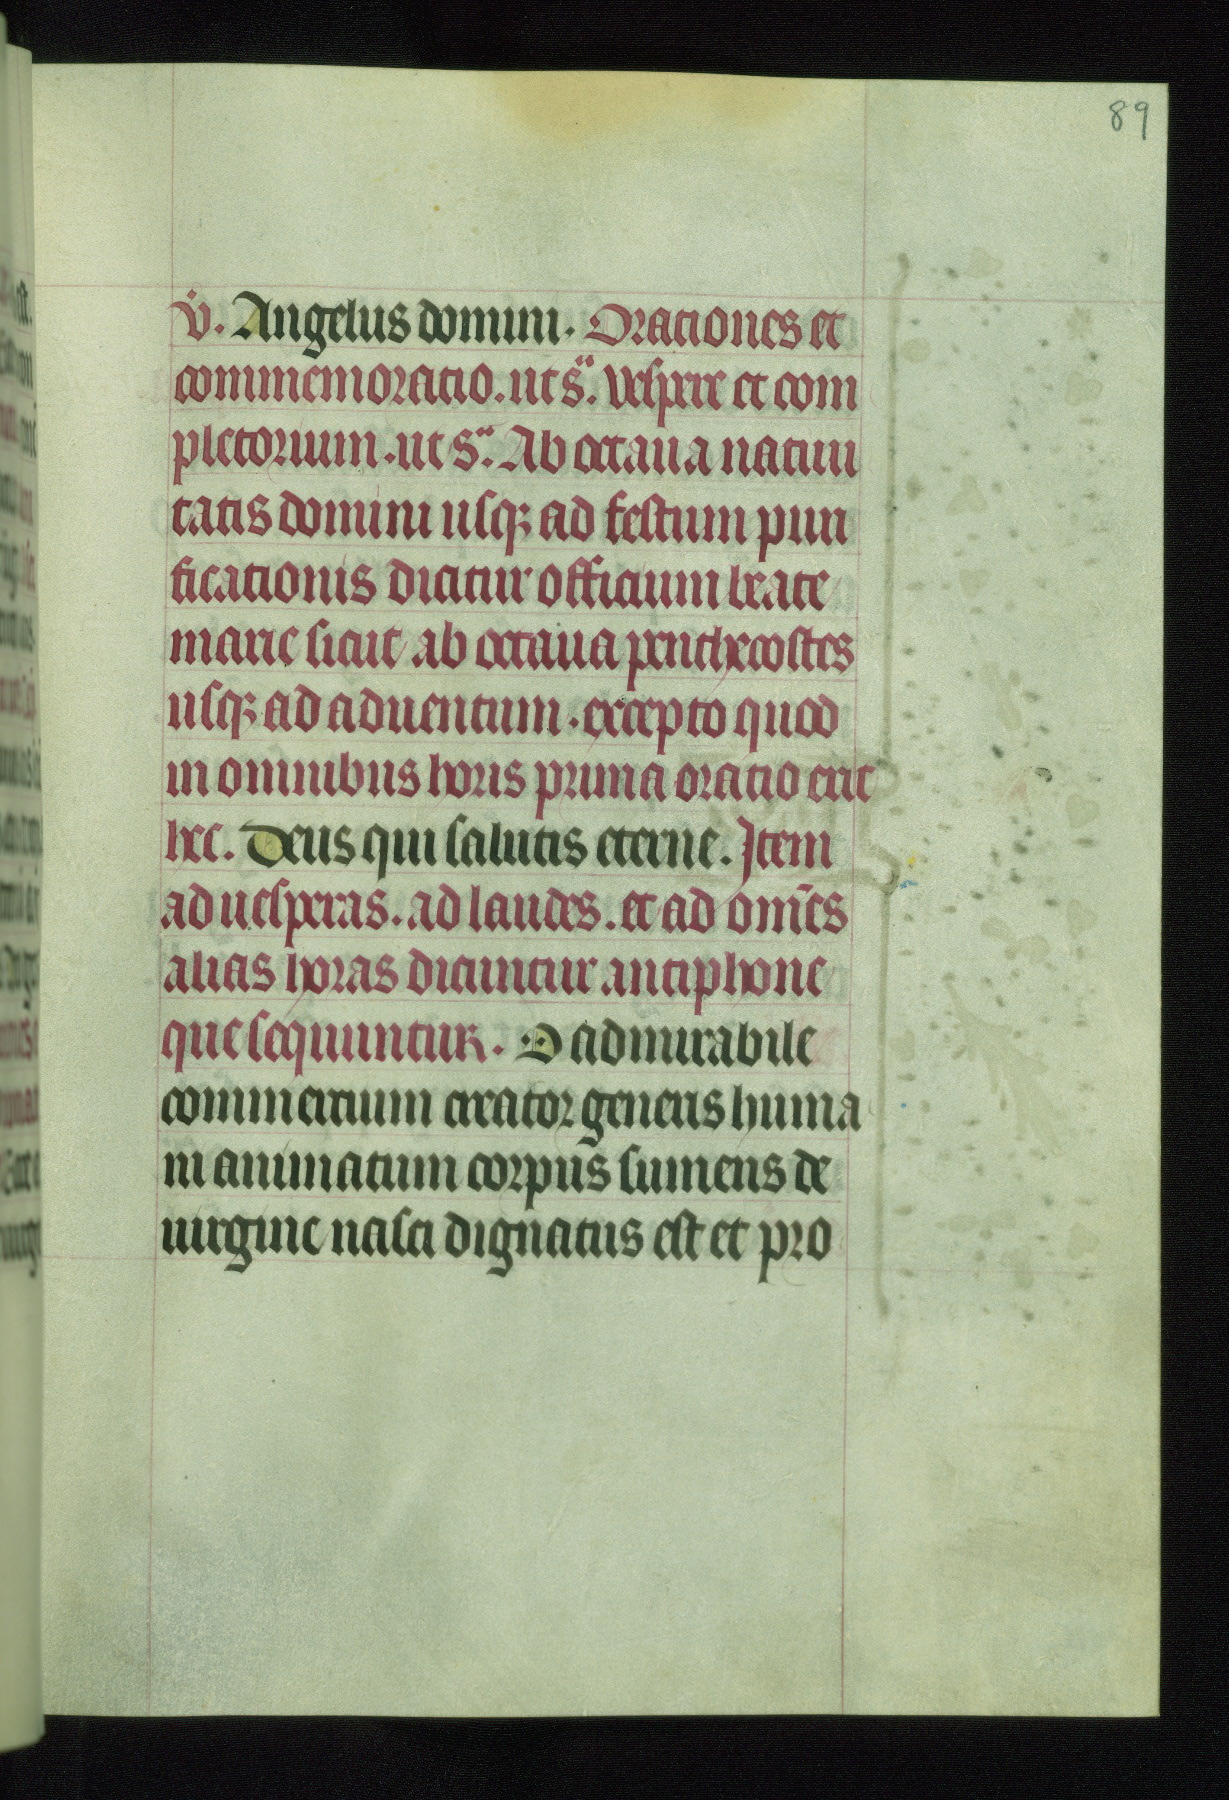 89
v̈. Angelus domini. Orationes et
commemoratio. ut s̈. Vespere et com
pletorium. ut s̈. Ab octaua natiui
tatis domini usqꝫ ad festum puri
ficationis dicitur officium beate
marie sicut ab octaua penthecostes
usqꝫ ad aduentum. excepto quod
in omnibus horis prima oratio erit
hec. Deus qui salutis eterne. Item
ad uesperas. ad laudes. et ad om̄es
alias horas dicuntur antiphone
que sequuntur. O admirabile
commercium creator generis huma
ni animatum corpus sumens de
uirgine nasci dignatus est et pro